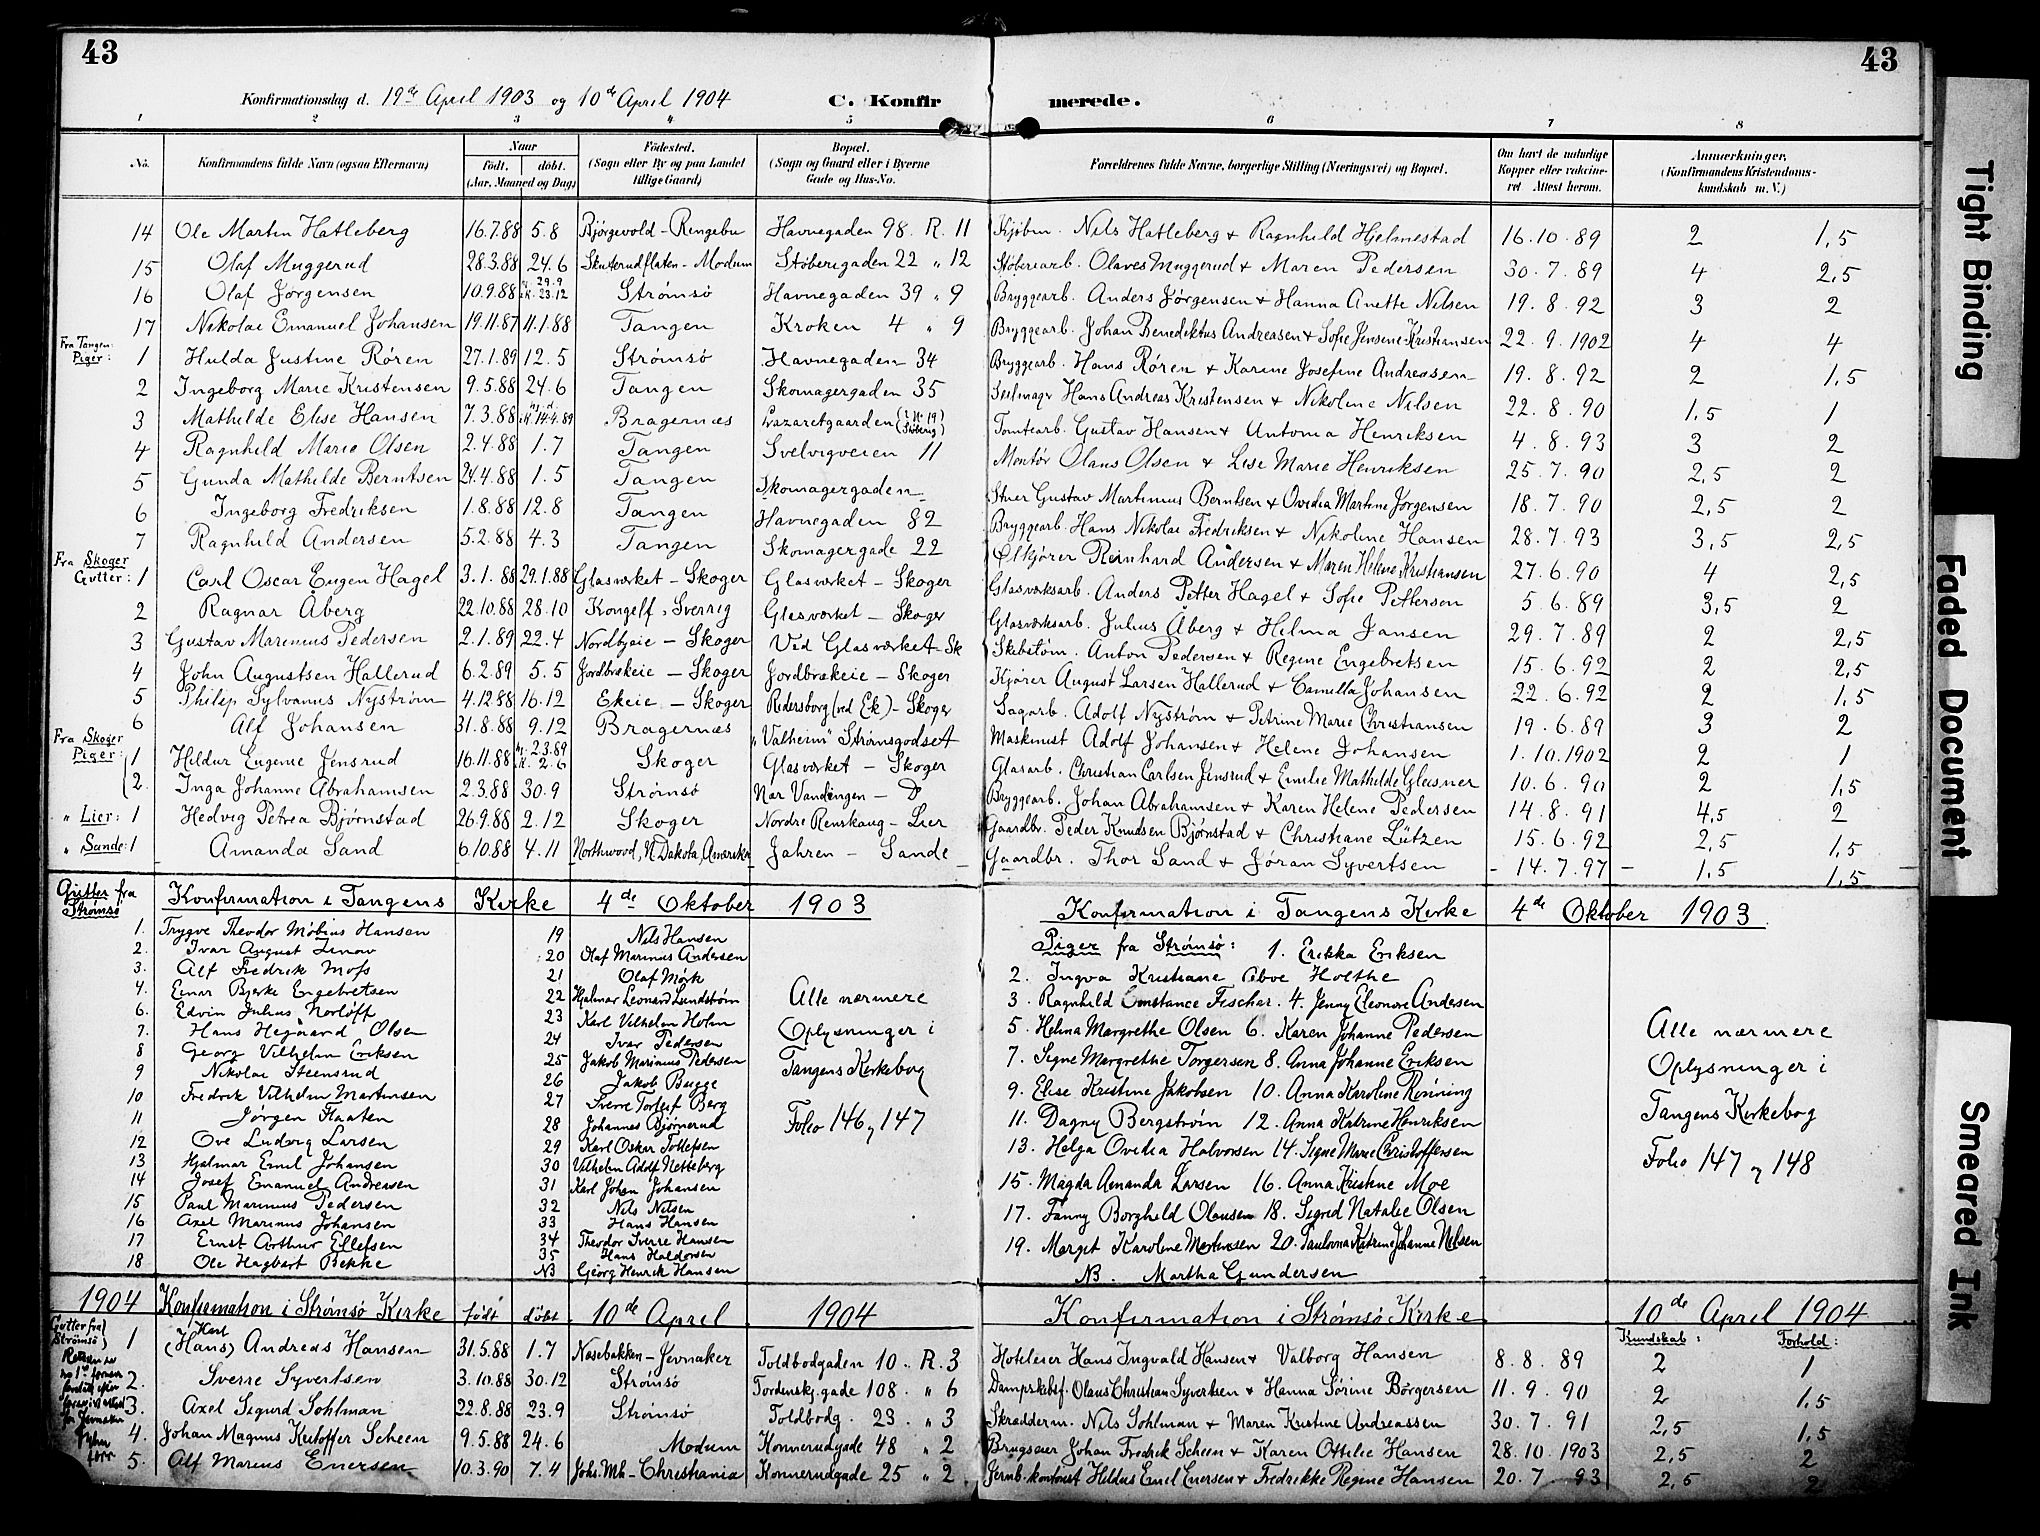 43
43
Konfirmationsdag d. 19de April 1903 og 10de April 1904 C. Konfirmerede.
1 2 3 4 5 6 7 8
No. Konfirmandens fulde Navn (ogsaa Efternavn) Naar født. døbt. (Aar, Maaned og Dag) Fødested. (Sogn eller By og paa Landet tillige Gaard) Bopæl. (Sogn og Gaard eller i Byerne Gade og Hus-No. Forældrenes fulde Navne, borgerlige Stilling (Næringsvei) og Bopæl. Om havt de naturlige Kopper eller vakcineret. Attest herom. Anmærkninger. (Konfirmandens Kristendomskundskab m. V.)
14 Ole Martin Hatleberg 16.7.88 5.8 Bjørgevold - Ringebu Havnegaden 98. R. 11 Kjøbm. Nils Hatleberg + Ragnhild Hjelmestad 16.10.89 2 1,5
15 Olaf Muggerud 28.3.88 24.6 Skuterudflaten - Modum Støberigaden 22 " 12 Støberiarb. Olaves Muggerud + Maren Pedersen 30.7.89 4 2,5
16 Olaf Jørgensen 10.9.88 29.9 K. 23.12 Strømsø Havnegaden 39 " 9 Bryggearb. Anders Jørgensen + Hanna Anette Nilsen 19.8.92 3 2
17 Nikolai Emanuel Johansen 19.11.87 11.1.88 Tangen Kroken 4 " 9 Bryggearb. Johan Benediktus Andreasen + Sofie Jensine Kristiansen 22.9.1902 4 4
Fra Tangen: Piger:
1 Hulda Justine Røren 27.1.89 12.5 Strømsø Havnegaden 34 Bryggearb. Hans Røren + Karine Josefine Andreasen 19.8.92 2 1,5
2 Ingeborg Marie Kristensen 9.5.88 24.6 Tangen Skomagergaden 35 Seilmager Hans Andreas Kristensen + Nikoline Nilsen 22.8.90 1,5 1
3 Mathilde Elise Hansen 7.3.88 14.4.89 Bragernæs Lazaretgaarden Tomtearb. Gustav Hansen + Antonia Henriksen 4.8.93 3 2
4 Ragnhild Marie Olsen 2.4.88 1.7 Tangen Svelvigveien 11 Montør Olaus Olsen + Lise Marie Henriksen 25.7.90 2,5 2
5 Gunda Mathilde Berntsen 24.4.88 1.5 Tangen Skomagergaden Stuer Gustav Martinius Berntsen + Ovidia Martine Jørgensen 18.7.90 2,5 2
6 Ingeborg Fredriksen 1.8.88 12.8 Tangen Havnegaden 82 Bryggearb. Hans Nikolai Fredriksen + Nikoline Hansen 28.7.93 3,5 2,5
7 Ragnhild Andersen 5.2.88 4.3 Tangen Skomagergade 22 Ølkjører Reinhard Andersen + Maren Helene Kristiansen 27.6.90 4 2,5
Fra Skoger Gutter:
1 Carl Oscar Eugen Hagel 3.1.88 29.1.88 Glasværket - Skoger Glasværket - Skoger Glasværksarb. Anders Petter Hagel + Sofie Pettersen 5.6.89 3,5 2
2 Ragnar Åberg 22.10.88 28.10 Kongelf, Sverrig Glasværket - Skoger Glasværksarb. Julius Åberg + Hilma Jansen 29.7.89 2 2,5
3 Gustav Marinius Pedersen 2.1.89 22.4 Nordbyeie - Skoger Ved Glasværket Sk Skibstøm. Anton Pedersen + Regine Engebretsen 15.6.92 2 2,5
4 John Augustsen Hallerud 6.2.89 5.5 Jordbrækeie - Skoger Jordbrækeie - Skoger Kjører August Larsen Hallerud + Camilla Johansen 22.6.92 2 1,5
5 Philip Sylvanus Nystrøm 4.12.88 16.12 Ekeie - Skoger Redersborg (ved Ek) - Skoger Sagarb. Adolf Nystrøm + Petrine Marie Christiansen 19.6.89 3 2
6 Alf Johansen 31.8.88 9.12 Bragernæs "Valheim" Strømsgodset Maskinist Adolf Johansen + Helene Johansen 1.10.1902 2 1
Fra Skoger Piger:
1 Hildur Eugenie Jensrud 16.11.88 2.3.89 K. 2.6 Skoger Glasværket - Skoger Glasarb. Christian Carlsen Jensrud + Emilie Mathilde Gleisner 10.6.90 2 1,5
2. Inga Johanne Abrahamsen 2.3.88 30.9 Strømsø Nar Vandingen - D Bryggearb. Johan Abrahamsen + Karen Helene Pedersen 14.8.91 4,5 2
" Lier: 1 Hedvig Petrea Bjørnstad 26.9.88 2.12 Skoger Nordre Renskaug - Lier Gaardbr. Peder Knudsen Bjørnstad + Christiane Lützen 15.6.92 2,5 1,5
" Sande: 1 Amanda Sand 6.10.88 4.11 Northwood, N. Dakota, Amerika Jahren - Sande Gaardbr. Thor Sand + Jøran Syvertsen - 14.7.97 - 1,5 1,5
Gutter fra Strømsø Konfirmation i Tangens Kirke 4de Oktober 1903
Konfirmation i Tangens Kirke 4de Oktober 1903
1. Trygve Theodor Møbius Hansen
2. Ivar August Linow
3. Alf Fredrik Moss
4. Einar Bjerke Engebretsen
6. Edvin Julius Norløff
7. Hans Hegaard Olsen
8 Georg Vilhelm Eriksen
9 Nikolai Steensrud
10 Fredrik Vilhelm Martinsen
11 Jørgen Flaaten
12 Ove Ludvig Larsen
13 Hjalmar Emil Johansen
14 Josef Emanuel Andreasen
15 Paul Marinius Pedersen
16 Axel Marinus Johansen
17 Ernst Arthur Ellefsen
18 Ole Hagbart Bekke
19 Nils Hansen
20 Olaf Marinus Andersen
21 Olaf Mørk
22 Hjalmar Leonard Lundstrøm
23 Karl Vilhelm Holm
24 Ivar Pedersen
25 Jakob Marinus Pedersen
26 Jakob Bugge
27 Sverre Torleif Berg
28 Johannes Bjørnerud
29 Karl Oskar Tollefsen
30 Vilhelm Adolf Netteberg
31 Karl Johan Johansen
32 Nils Nilsen
33 Hans Hansen
34 Theodor Sverre Hansen
35 Hans Haldorsen
NB Georg Henrik Hansen
Alle nærmere
Oplysninger i
Tangens Kirkebog
Folio 146 og 147
Piger fra Strømsø: 1. Erikka Eriksen
2. Ingva Kristiane Aboe Holthe
3. Ragnhild Constance Fischer. 4. Jenny Eleonore Andersen
5. Helma Margrethe Olsen 6. Karen Johanne Pedersen
7. Signe Margrethe Torgersen 8. Anna Johanne Eriksen
9. Elise Kristine Jakobsen 10. Anna Karoline Rønning
11. Dagny Bergstrøm 12. Anna Katrine Henriksen
13. Helga Ovidia Halvorsen 14. Signe Marie Christoffersen
15. Magda Amanda Larsen 16. Anna Kristine Moe
17. Fanny Borghild Olausen 18. Sigrid Natalie Olsen
19. Margit Karoline Mortensen 20. Paulovna Katrine Johanne Nilsen
NB. Martha Gundersen
Alle nærmere
Oplysninger i
Tangens Kirkebog
Folio 147 og 148
1904 Konfirmation i Strømsø Kirke født døbt. 10de April 1904
Konfirmation i Strømsø Kirke 10de April 1904
Gutter fra Strømsø Kundskab: Forhold:
1 Karl (Hans) Andreas Hansen 31.5.88 1.7 Næsebakken - Jevnaker Toldbodgaden 10.. R. 3 Hoteleier Hans Ingvald Hansen + Valborg Hansen 8.8.89 2 1
2. Sverre Syvertsen 3.10.88 30.12 Strømsø Tordenskj.gade 108. " 6 Dampskibsf. Olaus Christian Syvertsen + Hanna Sørine Børgersen 11.9.90 2 1,5
3. Axel Sigurd Sohlman 22.8.88 23.9 Strømsø Toldbodg. 23. " 3 Skrædderm. Nils Sohlman + Maren Kristine Andreassen 30.7.91 2,5 1,5
4. Johan Magnus Kristoffer Scheen 9.5.88 24.6 Modum Konnerudgade 48 " 2 Brugseier Johan Fredrik Scheen + Karen Ottilie Hansen 28.10.1903 2,5 2
5. Alf Marius Enersen 10.3.90 7.4 Johs. Mh. - Christiania Konnerudgade 25 " 2 Jernb. kontorist Hildus Emil Enersen + Fredrikke Regine Hansen 20.7.93 2,5 2
Tight Binding
Faded Document
Smeared Ink